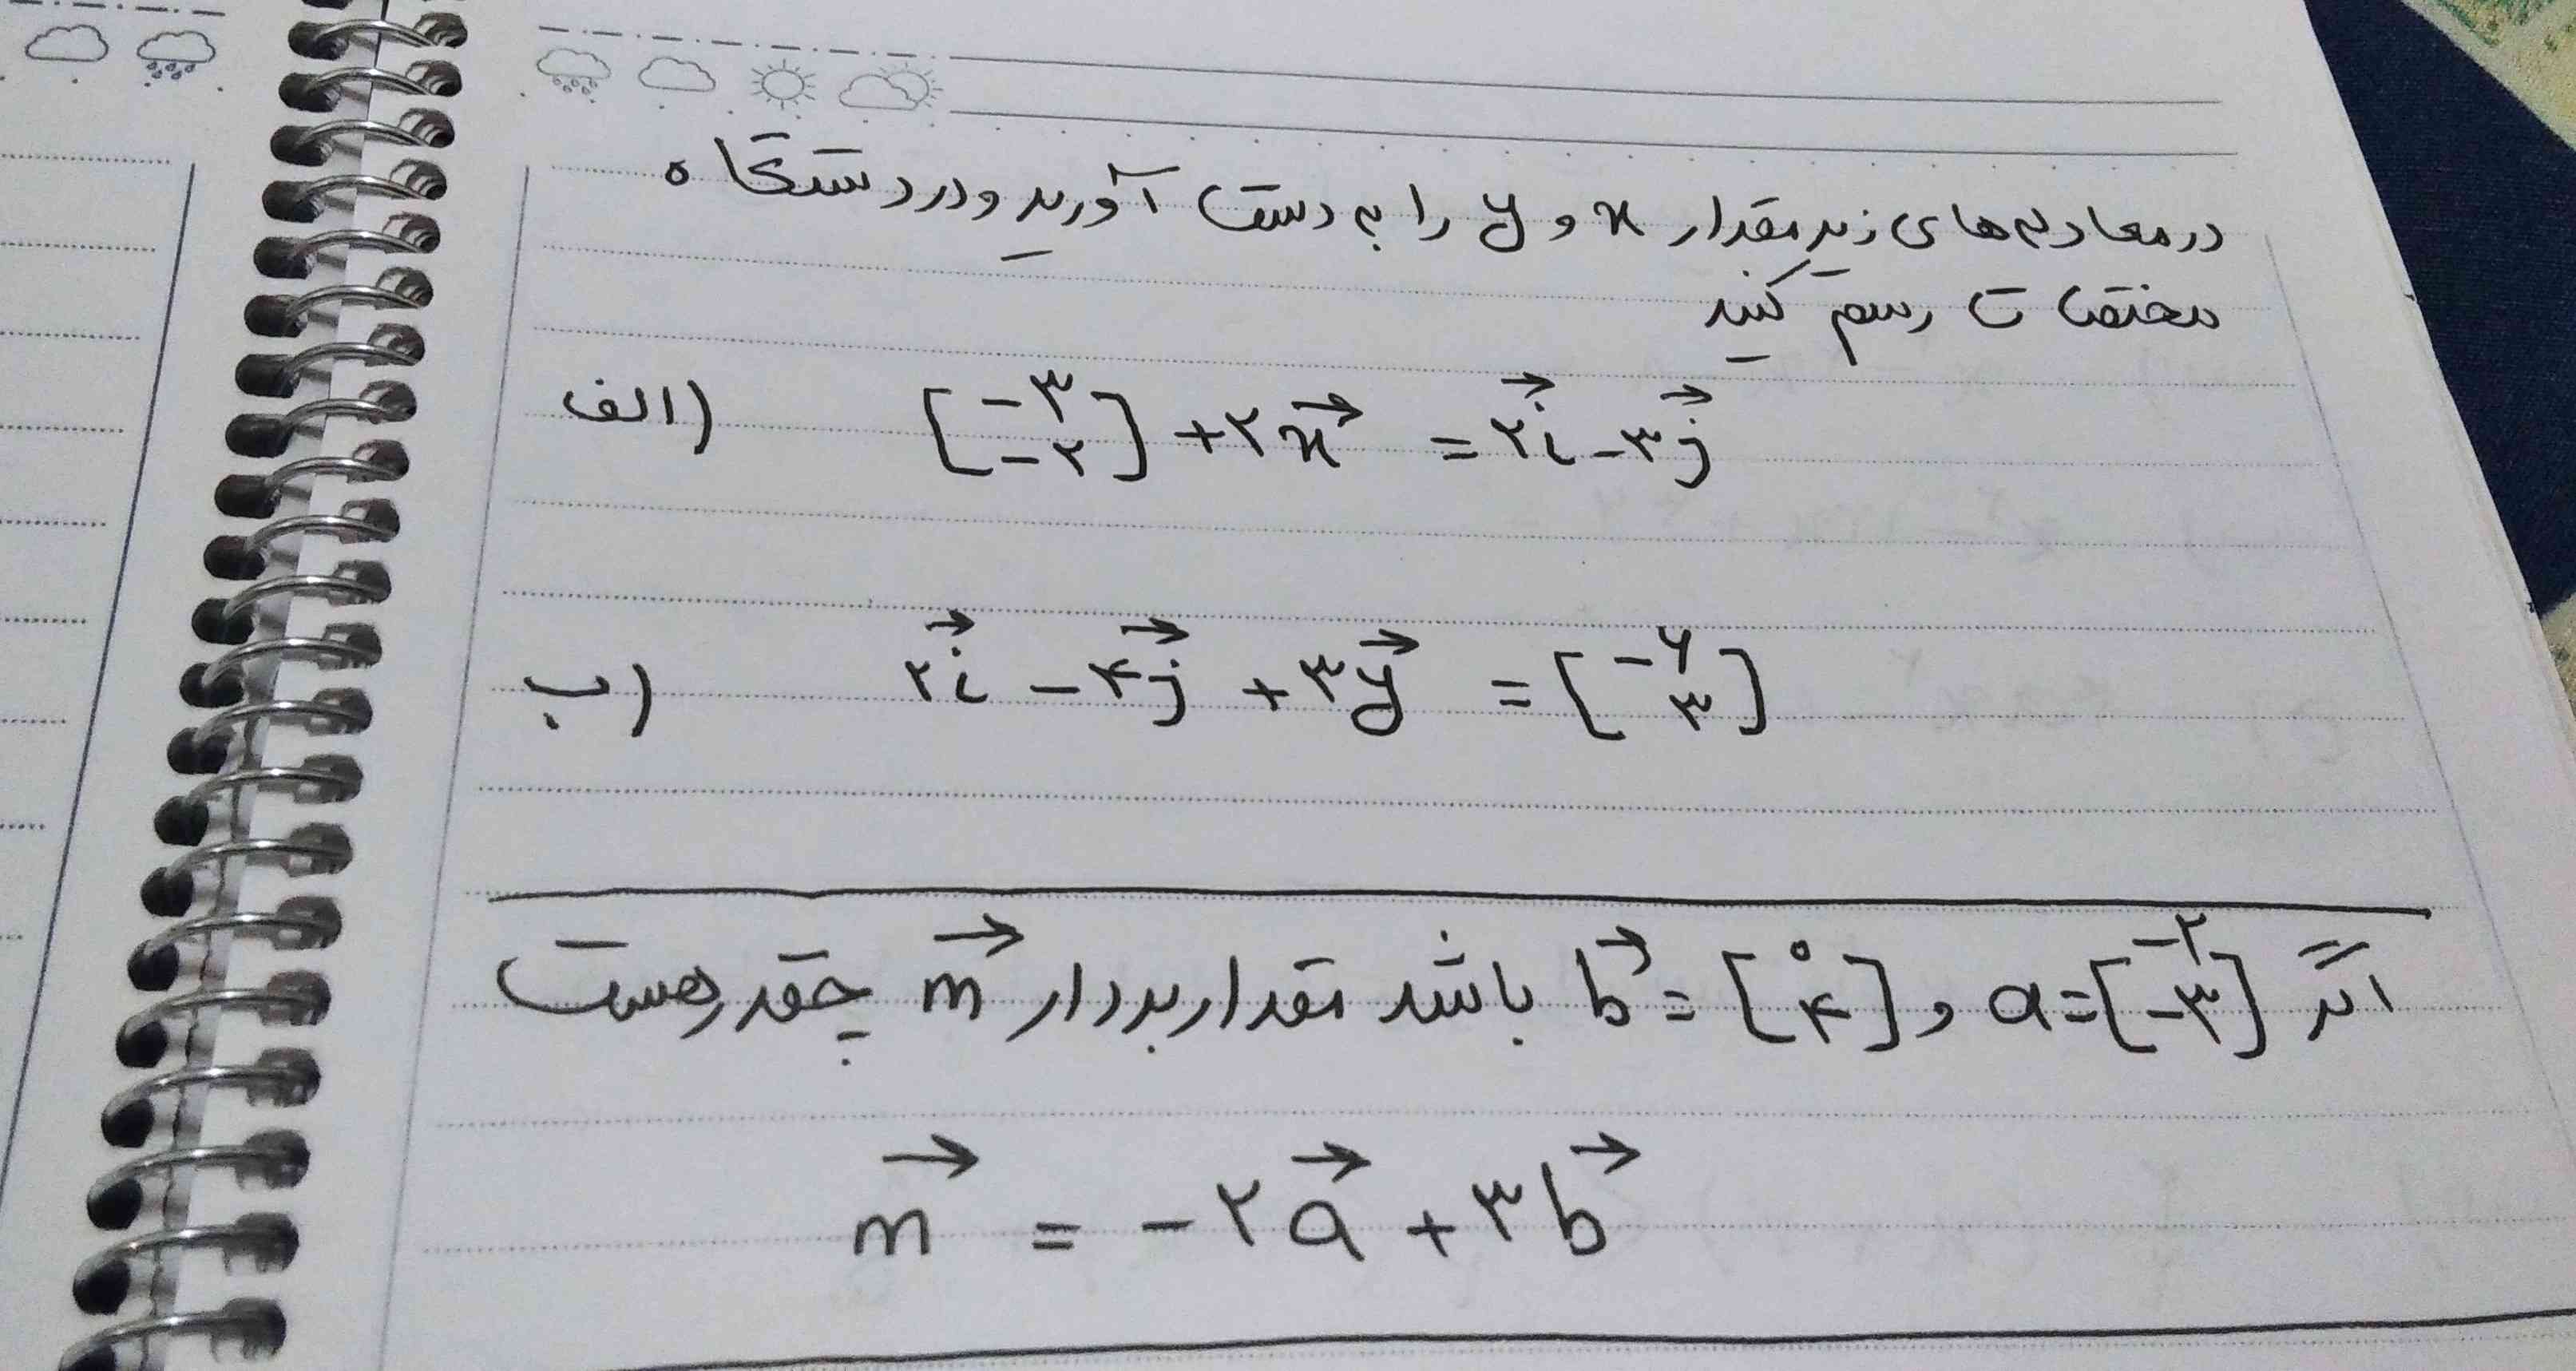 در معادله‌های زیر مقدار x و y را به دست آورید و در دستگاه
مختصات رسم کنید
الف) [-۳ -۲] + ۲x⃗ = ۲i⃗ - ۳j⃗
ب) ۲i⃗ - ۴j⃗ + ۳y⃗ = [-۶ ۳]
اگر a = [-۲ -۳] و b⃗ = [۰ ۴] باشد مقدار بردار m⃗ چقدر هست
m⃗ = -۲a⃗ + ۳b⃗